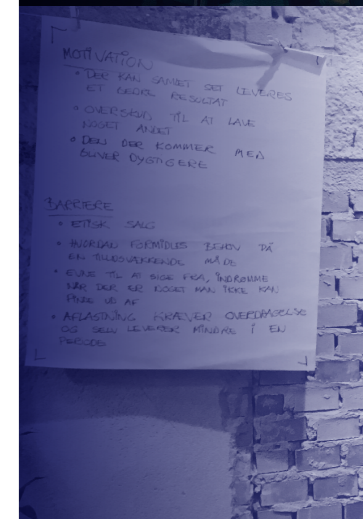 MOTIVATION
• DER KAN SAMLET SET LEVERES
ET BEDRE RESULTAT
• OVERSKUD TIL AT LAVE
NOGET ANDET
• DEN DER KOMMER MED
BLIVER DYGTIGERE
BARRIERE
• ETISK SALG
• HVORDAN FORMIDLES BEHOV PÅ
EN TILLIDSVÆKKENDE MÅDE
• EVNE TIL AT SIGE FRA, INDRØMME
NÅR DER ER NOGET MAN IKKE KAN
FINDE UD AF
• AFLASTNING KRÆVER OVERDRAGELSE
OG SELV LEVERER MINDRE I EN
PERIODE